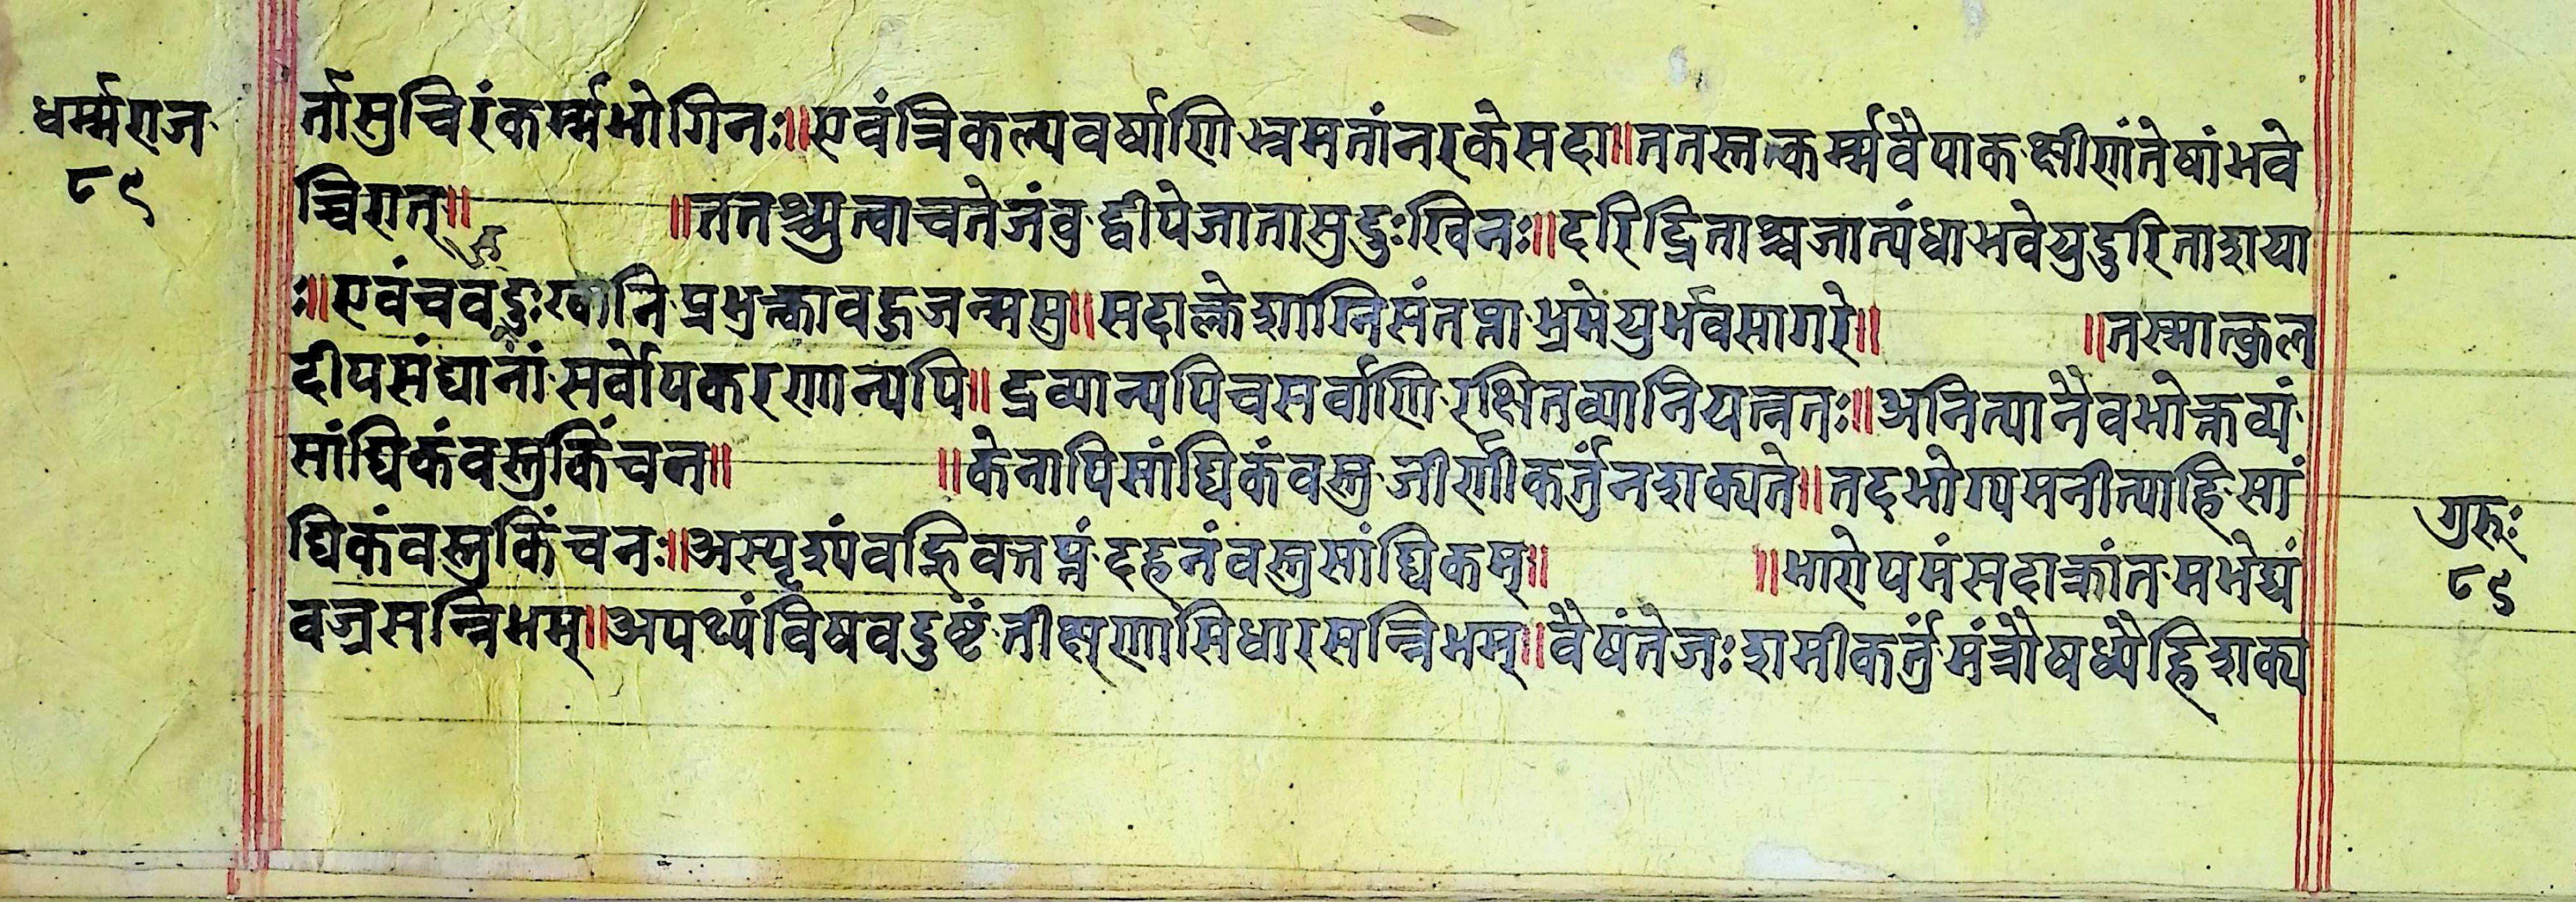 धर्म्मराज
८९
र्तासुचिरंकर्म्मभोगिनः॥एवंत्रिकल्पवर्षाणिभ्रमतांनरकेसदा॥ततस्तत्कर्म्मवैपाकक्षीणंतेषांभवे
च्चिरात्॥ ॥ततश्च्युत्वाचतेजंवुद्वीपेजातासुदुःखिनः॥दरिद्रिताश्चजात्यंधाभवेयुदुरिताशया
ः॥एवंचवदुःखानिप्रभुत्कावहुजन्मसु॥सदाक्लेशाग्निसंतप्ताभ्रमेयुर्भवसागरे॥ ॥तस्मात्कुल
दीपसंघानांसर्वोपकरणान्यपि॥द्रव्यान्यपिचसर्वाणिरक्षितव्यानियत्नतः॥अनित्यानैवभोक्तव्यं
सांघिकंवस्तुकिंचन॥ ॥केनापिसांघिकंवस्तुजीर्णीकर्तुंनशक्यते॥तदभोग्यमनीत्याहिसां
घिकंवस्तुकिंचनः॥अस्पृश्यंवह्निवत्तप्तंदहनंवस्तुसांघिकम्॥ ॥भारोपमंसदाक्रांतमभेद्यं
वज्रसन्निभम्॥अपथ्यंविषवदुष्टंतीक्ष्णासिधारसन्निभम्॥वैषंतेजःशमीकर्तुंमंत्रौषध्यैर्हिशक्य
गुरुः
८९